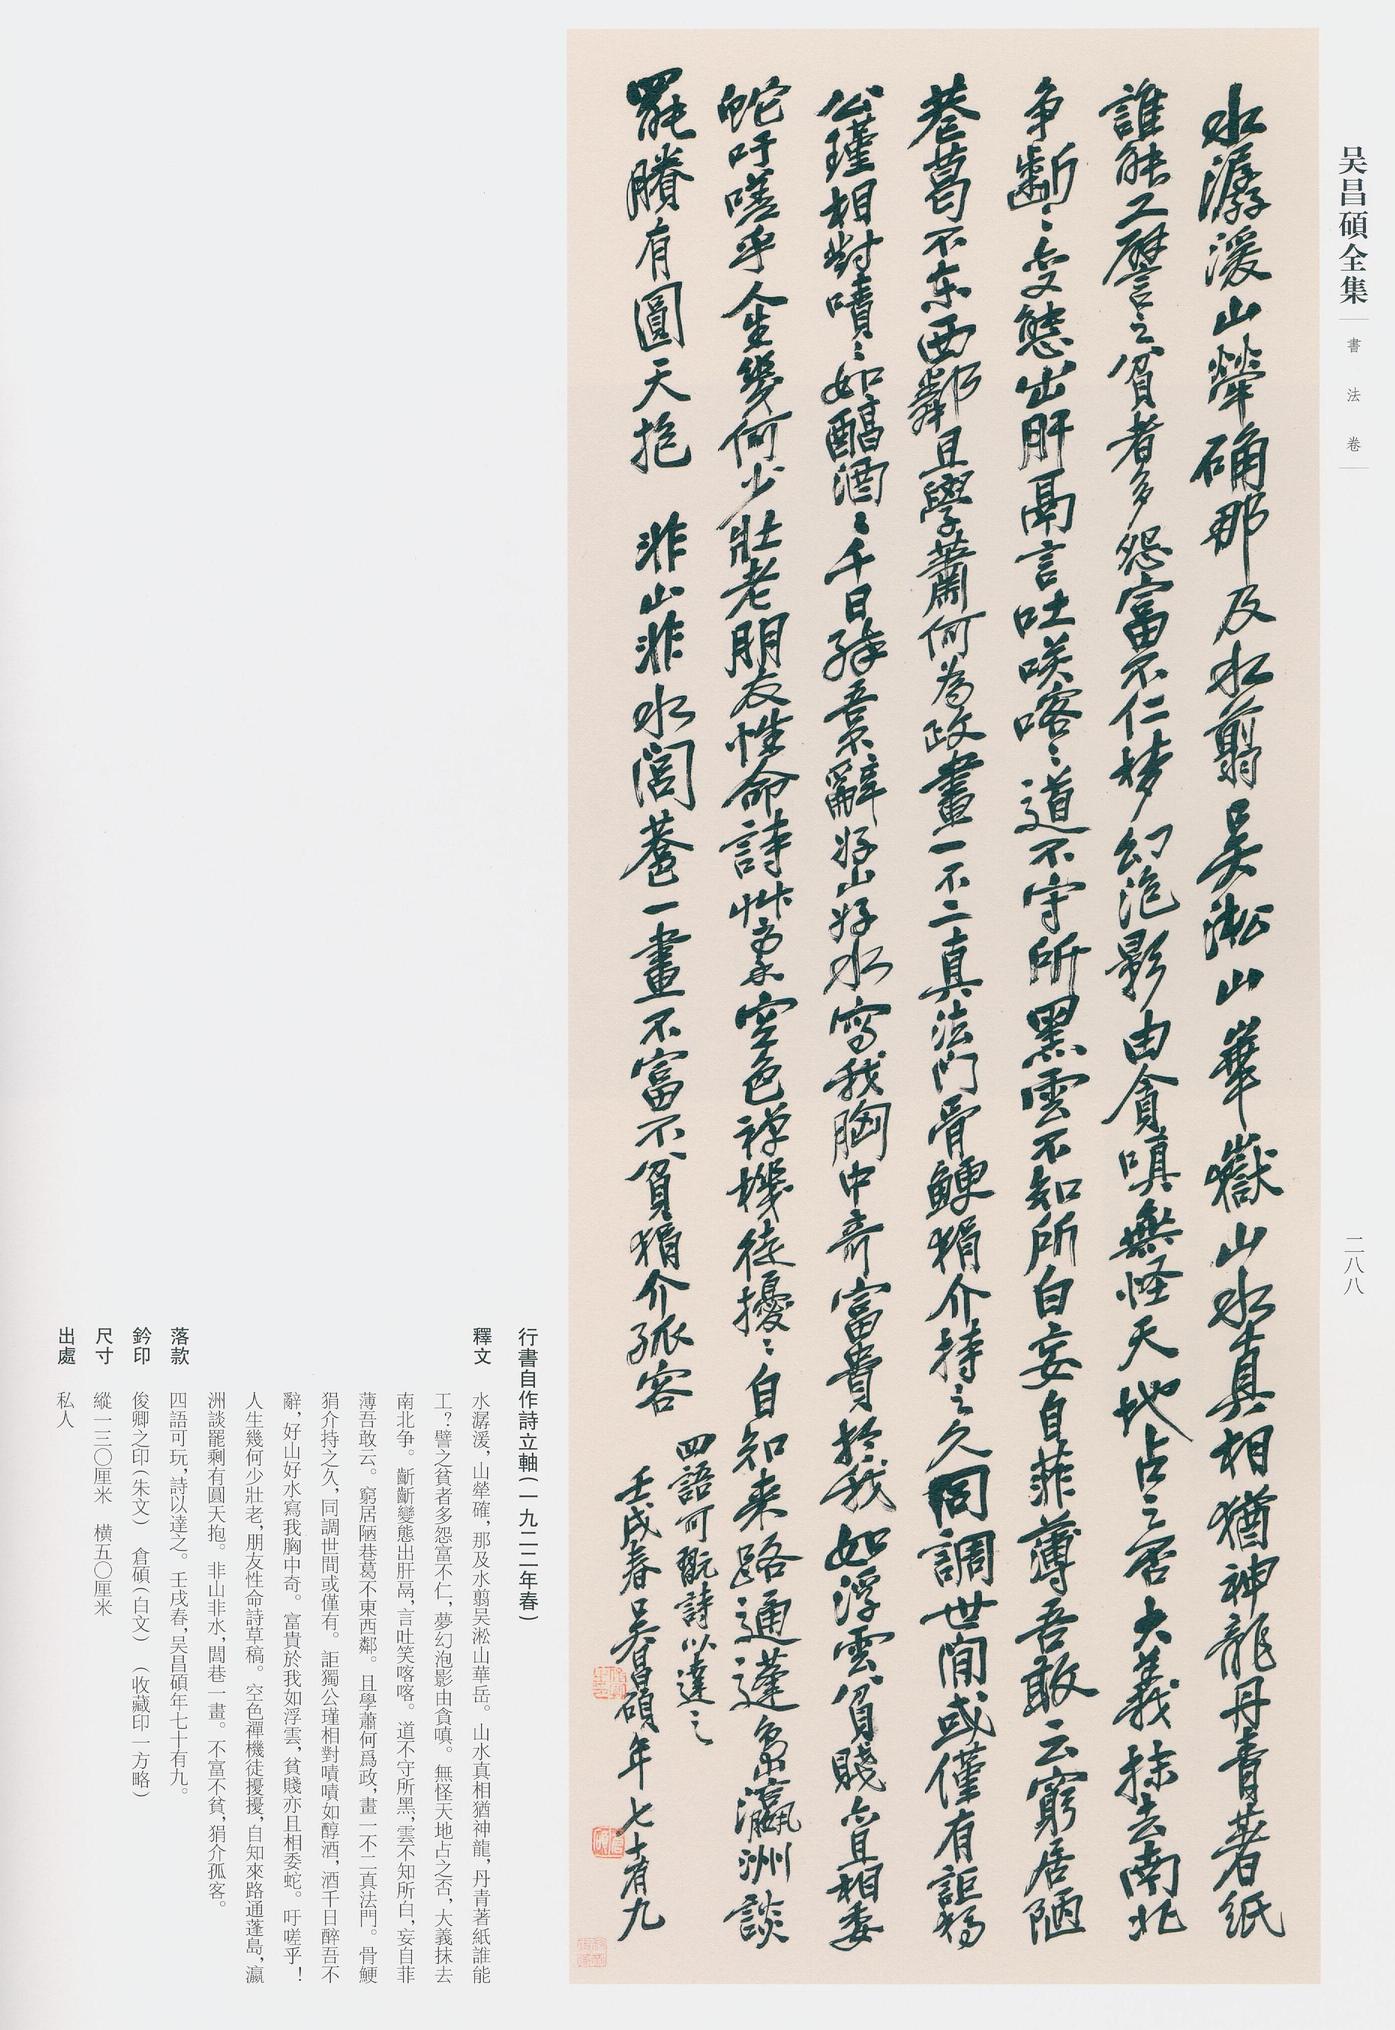 吴昌碩全集
書法卷
二八八
水潺湲山犖确那及水翦吴淞山華嶽山水真相猶神龍丹青著紙
誰能工譬之貧者多怨富不仁夢幻泡影由貪嗔無怪天地占之否大義抹去南北
争斷〻變態出肝鬲言吐笑喀〻道不守所黑雲不知所白妄自菲薄吾敢云窮居陋
巷葛不东西鄰且學蕭何為政畫一不二真法門骨鯁狷介持之久同調世間或僅有詎獨
公瑾相對嘖〻如醇酒〻千日醉吾不辭好山好水寫我胸中奇富貴於我如浮雲貧賤亦且相委
蛇吁嗟乎人生幾何少壯老朋友性命詩艸稾空色禅機徒擾〻自知来路通蓬島瀛洲談
罷賸有圓天抱 非山非水閭巷一畫不富不貧狷介孤客
四語可翫詩以達之
壬戌春吴昌碩年七十有九
行書自作詩立軸(一九二二年春)
釋文 水潺湲，山犖確，那及水翦吴淞山華岳。山水真相猶神龍，丹青著紙誰能
工？譬之貧者多怨富不仁，夢幻泡影由貪嗔。無怪天地占之否，大義抹去
南北争。斷斷變態出肝鬲，言吐笑喀喀。道不守所黑，雲不知所白，妄自菲
薄吾敢云。窮居陋巷葛不東西鄰。且學蕭何爲政，畫一不二真法門。骨鯁
狷介持之久，同調世間或僅有。詎獨公瑾相對嘖嘖如醇酒，酒千日醉吾不
辭，好山好水寫我胸中奇。富貴於我如浮雲，貧賤亦且相委蛇。吁嗟乎！
人生幾何少壯老，朋友性命詩草稿。空色禪機徒擾擾，自知來路通蓬島，瀛
洲談罷剩有圓天抱。非山非水，閭巷一畫。不富不貧，狷介孤客。
落款 四語可玩，詩以達之。壬戌春，吴昌碩年七十有九。
鈐印 俊卿之印(朱文) 倉碩(白文) (收藏印一方略)
尺寸 縱一三〇厘米 橫五〇厘米
出處 私人